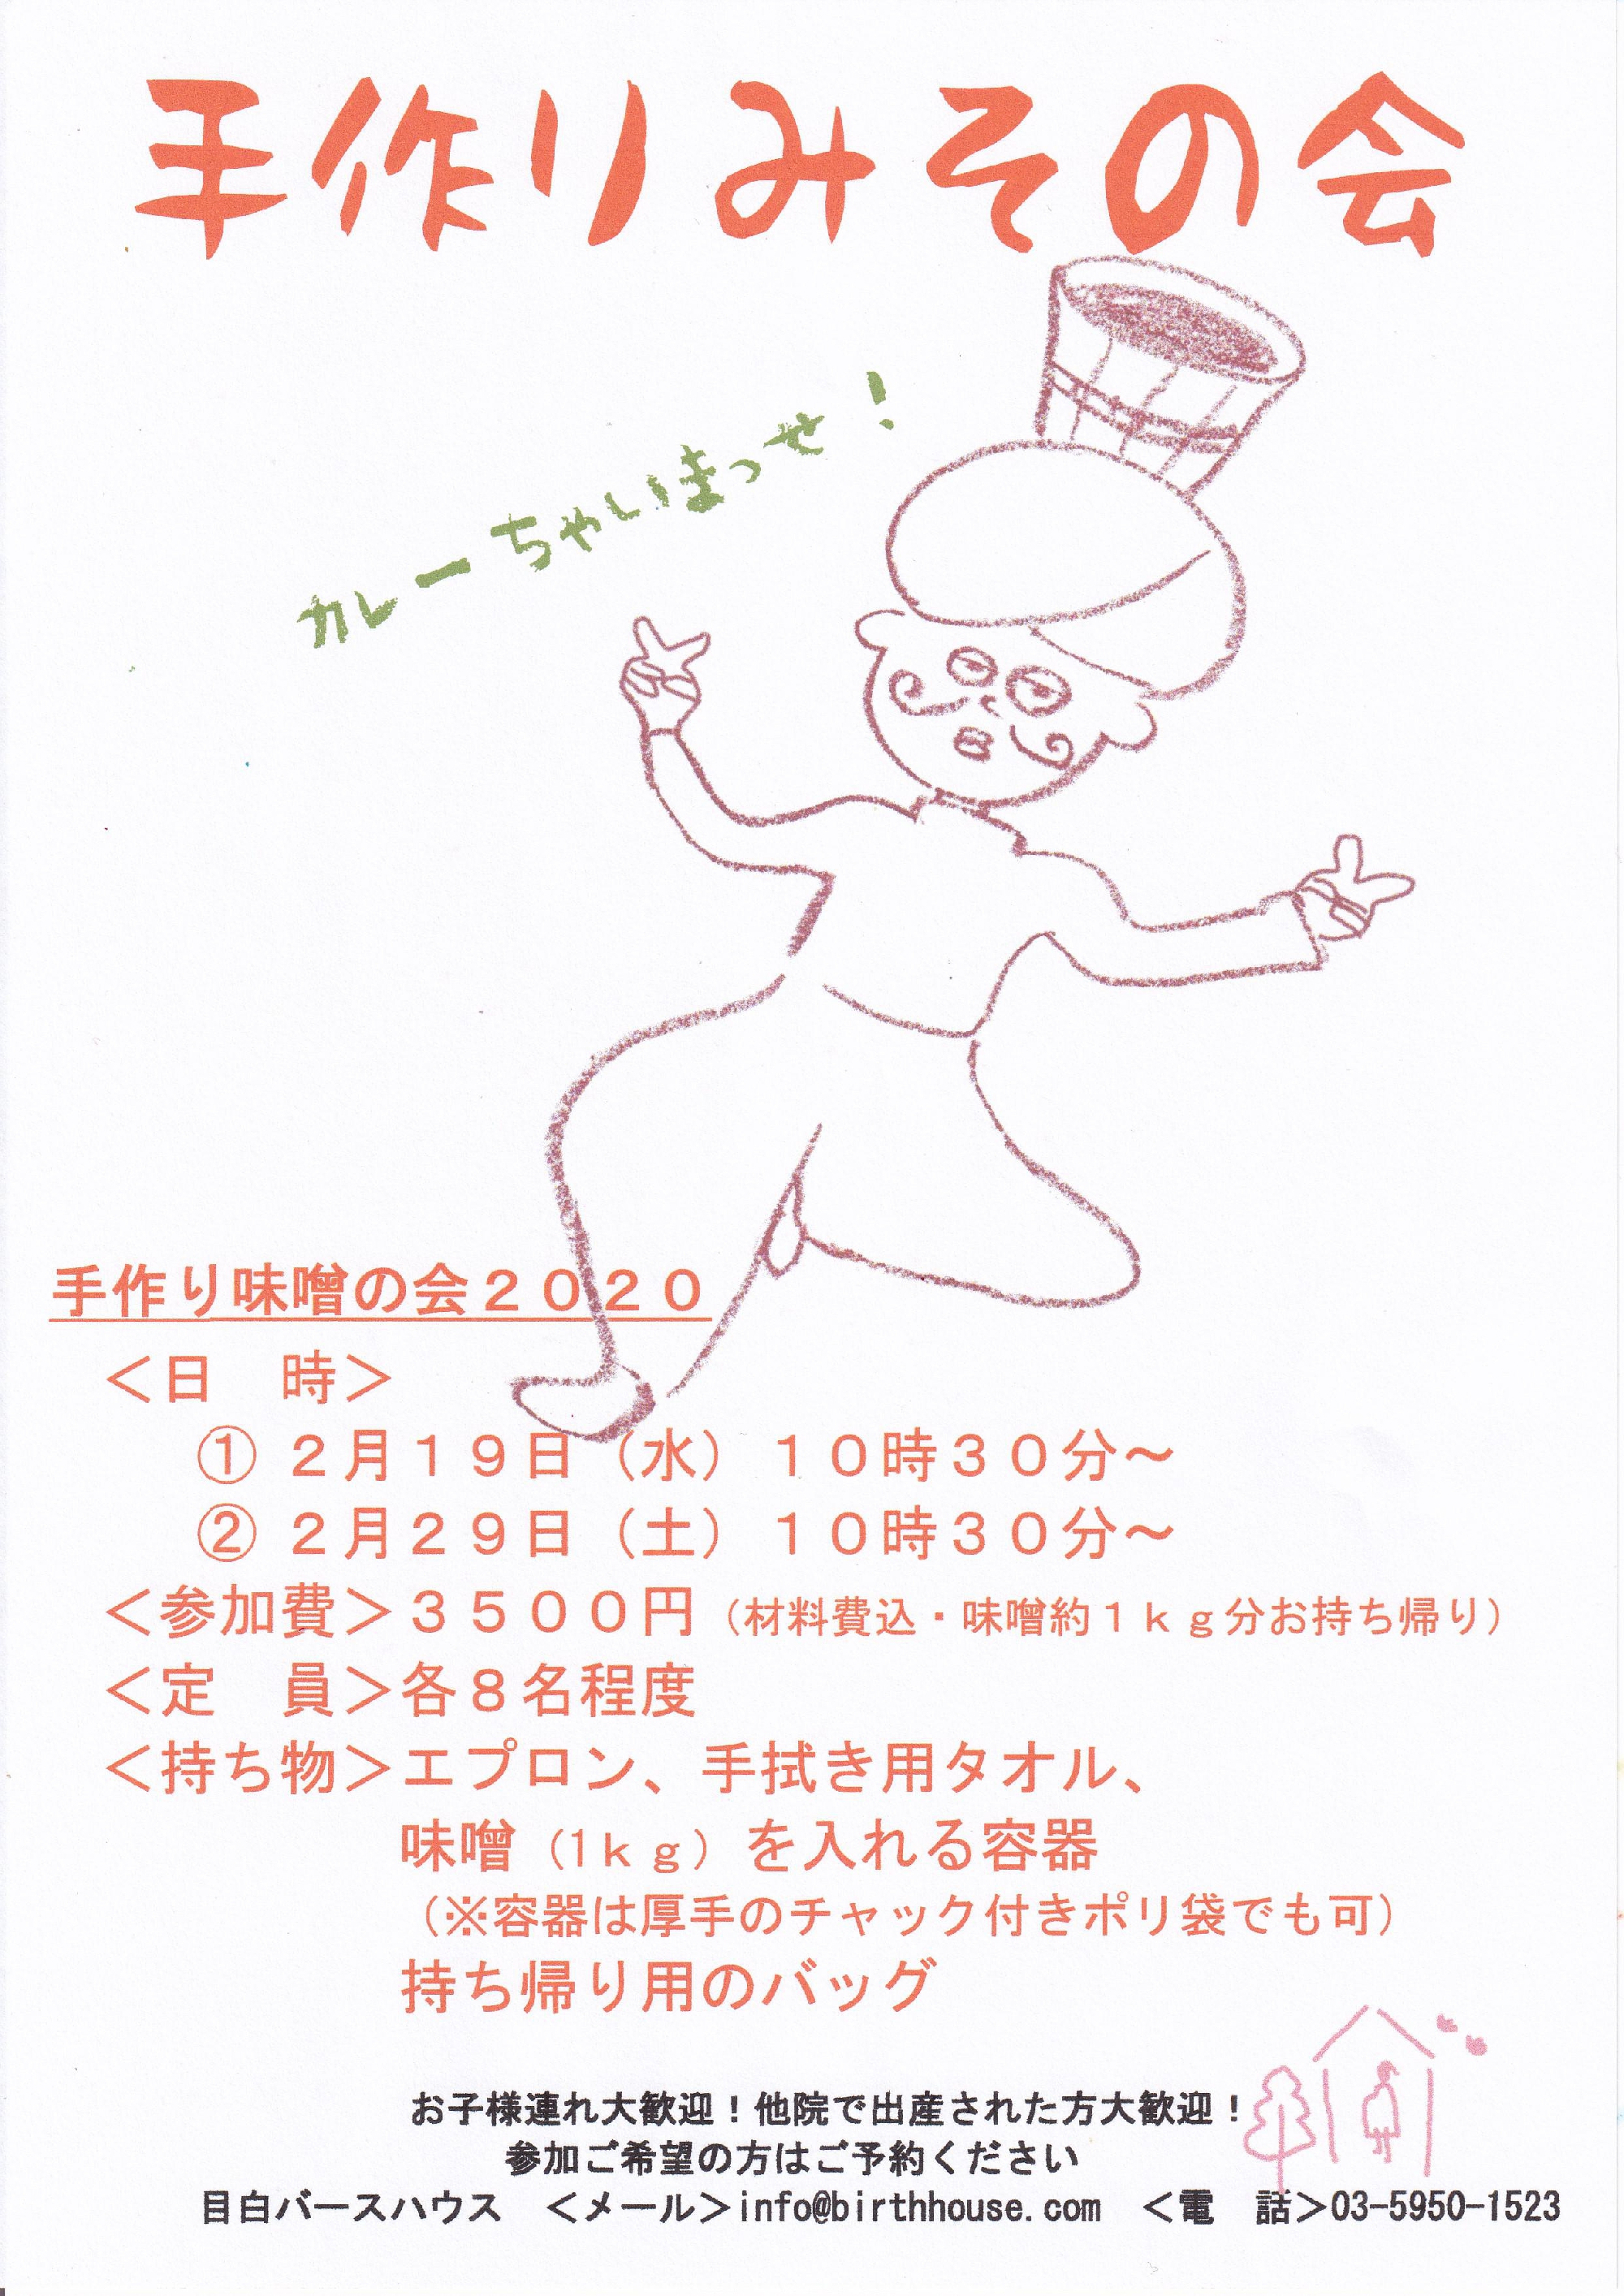 手作りみその会
カレーちゃいまっせ！
手作り味噌の会２０２０
＜日　時＞
① ２月１９日（水）１０時３０分～
② ２月２９日（土）１０時３０分～
＜参加費＞３５００円（材料費込・味噌約１ｋｇ分お持ち帰り）
＜定　員＞各８名程度
＜持ち物＞エプロン、手拭き用タオル、
味噌（1ｋｇ）を入れる容器
（※容器は厚手のチャック付きポリ袋でも可）
持ち帰り用のバッグ
お子様連れ大歓迎！他院で出産された方大歓迎！
参加ご希望の方はご予約ください
目白バースハウス　＜メール＞info@birthhouse.com　＜電　話＞03-5950-1523